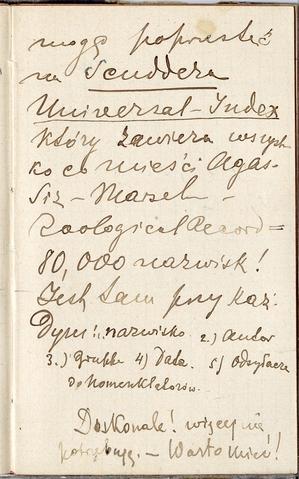 mogę poprzestać
na Scuddera
Universal-Index
który zawiera wszyst
ko co mieści Agas-
siz - Marsch -
Zoological Record =
80,000 nazwisk!
Jest tam przy każ:
dym: 1.) nazwisko 2.) autor
3.) Gruppe 4) Data 5) Odsyłacze
do Nomenklatorów.
Doskonale! więcej nie
potrzebuję. - Warto mieć!